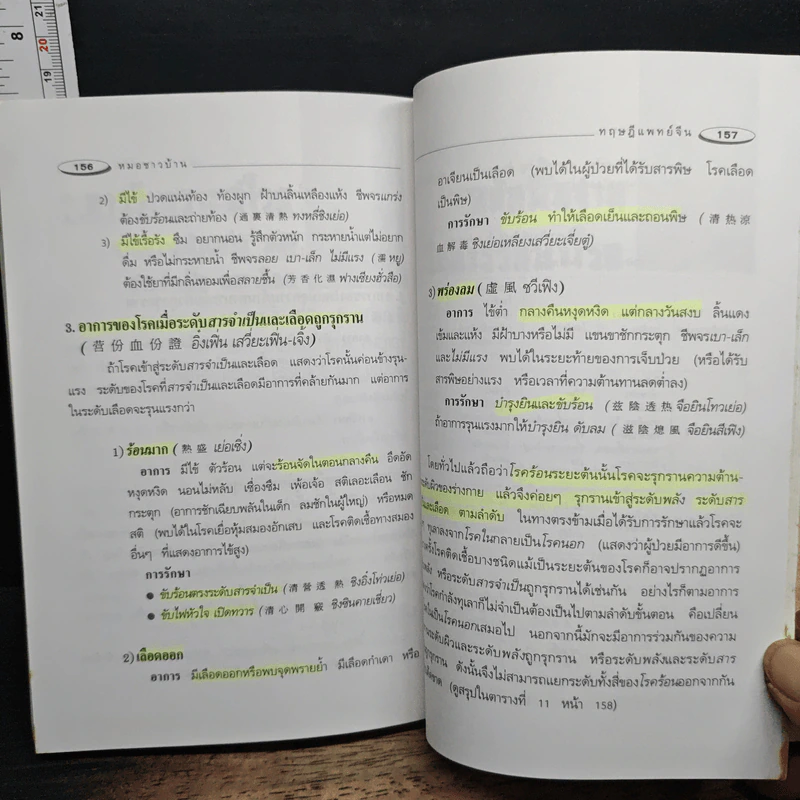 8
20
21
19
156 หมอชาวบ้าน
2) มีไข้ ปวดแน่นท้อง ท้องผูก ฝ้าบนลิ้นเหลืองแห้ง ชีพจรแกร่ง
ต้องขับร้อนและถ่ายท้อง (通裏清熱 ทงหลี่ชิงเย่อ)
3) มีไข้เรื้อรัง ซึม อยากนอน รู้สึกตัวหนัก กระหายน้ำแต่ไม่อยาก
ดื่ม หรือไม่กระหายน้ำ ชีพจรลอย เบา-เล็ก ไม่มีแรง (濡 หยู)
ต้องใช้ยาที่มีกลิ่นหอมเพื่อสลายชื้น (芳香化濕 ฟางเซียงฮั่วสือ)
3. อาการของโรคเมื่อระดับสารจำเป็นและเลือดถูกรุกราน
(营份血份證 อิ๋งเฟิ่น เสวี่ยะเฟิ่น-เจิ้ง)
ถ้าโรคเข้าสู่ระดับสารจำเป็นและเลือด แสดงว่าโรคนั้นค่อนข้างรุน-
แรง ระดับของโรคที่สารจำเป็นและเลือดมีอาการที่คล้ายกันมาก แต่อาการ
ในระดับเลือดจะรุนแรงกว่า
1) ร้อนมาก (熱盛 เย่อเซิ่ง)
อาการ มีไข้ ตัวร้อน แต่จะร้อนจัดในตอนกลางคืน อึดอัด
หงุดหงิด นอนไม่หลับ เซื่องซึม เพ้อเจ้อ สติเลอะเลือน ชัก
กระตุก (อาการชักเฉียบพลันในเด็ก ลมชักในผู้ใหญ่) หรือหมด
สติ (พบได้ในโรคเยื่อหุ้มสมองอักเสบ และโรคติดเชื้อทางสมอง
อื่นๆ ที่แสดงอาการไข้สูง)
การรักษา
● ขับร้อนตรงระดับสารจำเป็น (清營透熱 ชิงอิ๋งโท่วเย่อ)
● ขับไฟหัวใจ เปิดทวาร (清心開竅 ชิงซินคายเชี่ยว)
2) เลือดออก
อาการ มีเลือดออกหรือพบจุดพรายย้ำ มีเลือดกำเดา หรือ
ทฤษฎีแพทย์จีน 157
อาเจียนเป็นเลือด (พบได้ในผู้ป่วยที่ได้รับสารพิษ โรคเลือด
เป็นพิษ)
การรักษา ขับร้อน ทำให้เลือดเย็นและถอนพิษ (清热涼
血解毒 ชิงเย่อเหลียงเสวี่ยะเจี่ยตู๋)
3) พร่องลม (虛風 ซวีเฟิง)
อาการ ไข้ต่ำ กลางคืนหงุดหงิด แต่กลางวันสงบ ลิ้นแดง
เข้มและแห้ง มีฝ้าบางหรือไม่มี แขนขาชักกระตุก ชีพจรเบา-เล็ก
และไม่มีแรง พบได้ในระยะท้ายของการเจ็บป่วย (หรือได้รับ
สารพิษอย่างแรง หรือเวลาที่ความต้านทานลดต่ำลง)
การรักษา บำรุงยินและขับร้อน (兹陰透热 จือยินโทวเย่อ)
ถ้าอาการรุนแรงมากให้บำรุงยิน ดับลม (滋陰熄風 จือยินสีเฟิง)
โดยทั่วไปแล้วถือว่าโรคร้อนระยะต้นนั้นโรคจะรุกรานความต้าน-
ระดับผิวของร่างกาย แล้วจึงค่อยๆ รุกรานเข้าสู่ระดับพลัง ระดับสาร
และเลือด ตามลำดับ ในทางตรงข้ามเมื่อได้รับการรักษาแล้วโรคจะ
ทุเลาลงจากโรคในกลายเป็นโรคนอก (แสดงว่าผู้ป่วยมีอาการดีขึ้น)
ครั้งโรคติดเชื้อบางชนิดแม้เป็นระยะต้นของโรคก็อาจปรากฏอาการ
พลัง หรือระดับสารจำเป็นถูกรุกรานได้เช่นกัน อย่างไรก็ตามอาการ
โรคกำลังทุเลาก็ไม่จำเป็นต้องเป็นไปตามลำดับขั้นตอน คือเปลี่ยน
ในเป็นโรคนอกเสมอไป นอกจากนี้มักจะมีอาการร่วมกันของความ
ระดับผิวและระดับพลังถูกรุกราน หรือระดับพลังและระดับสาร
ถูกรุกราน ดังนั้นจึงไม่สามารถแยกระดับทั้งสี่ของโรคร้อนออกจากกัน
(ดูสรุปในตารางที่ 11 หน้า 158)